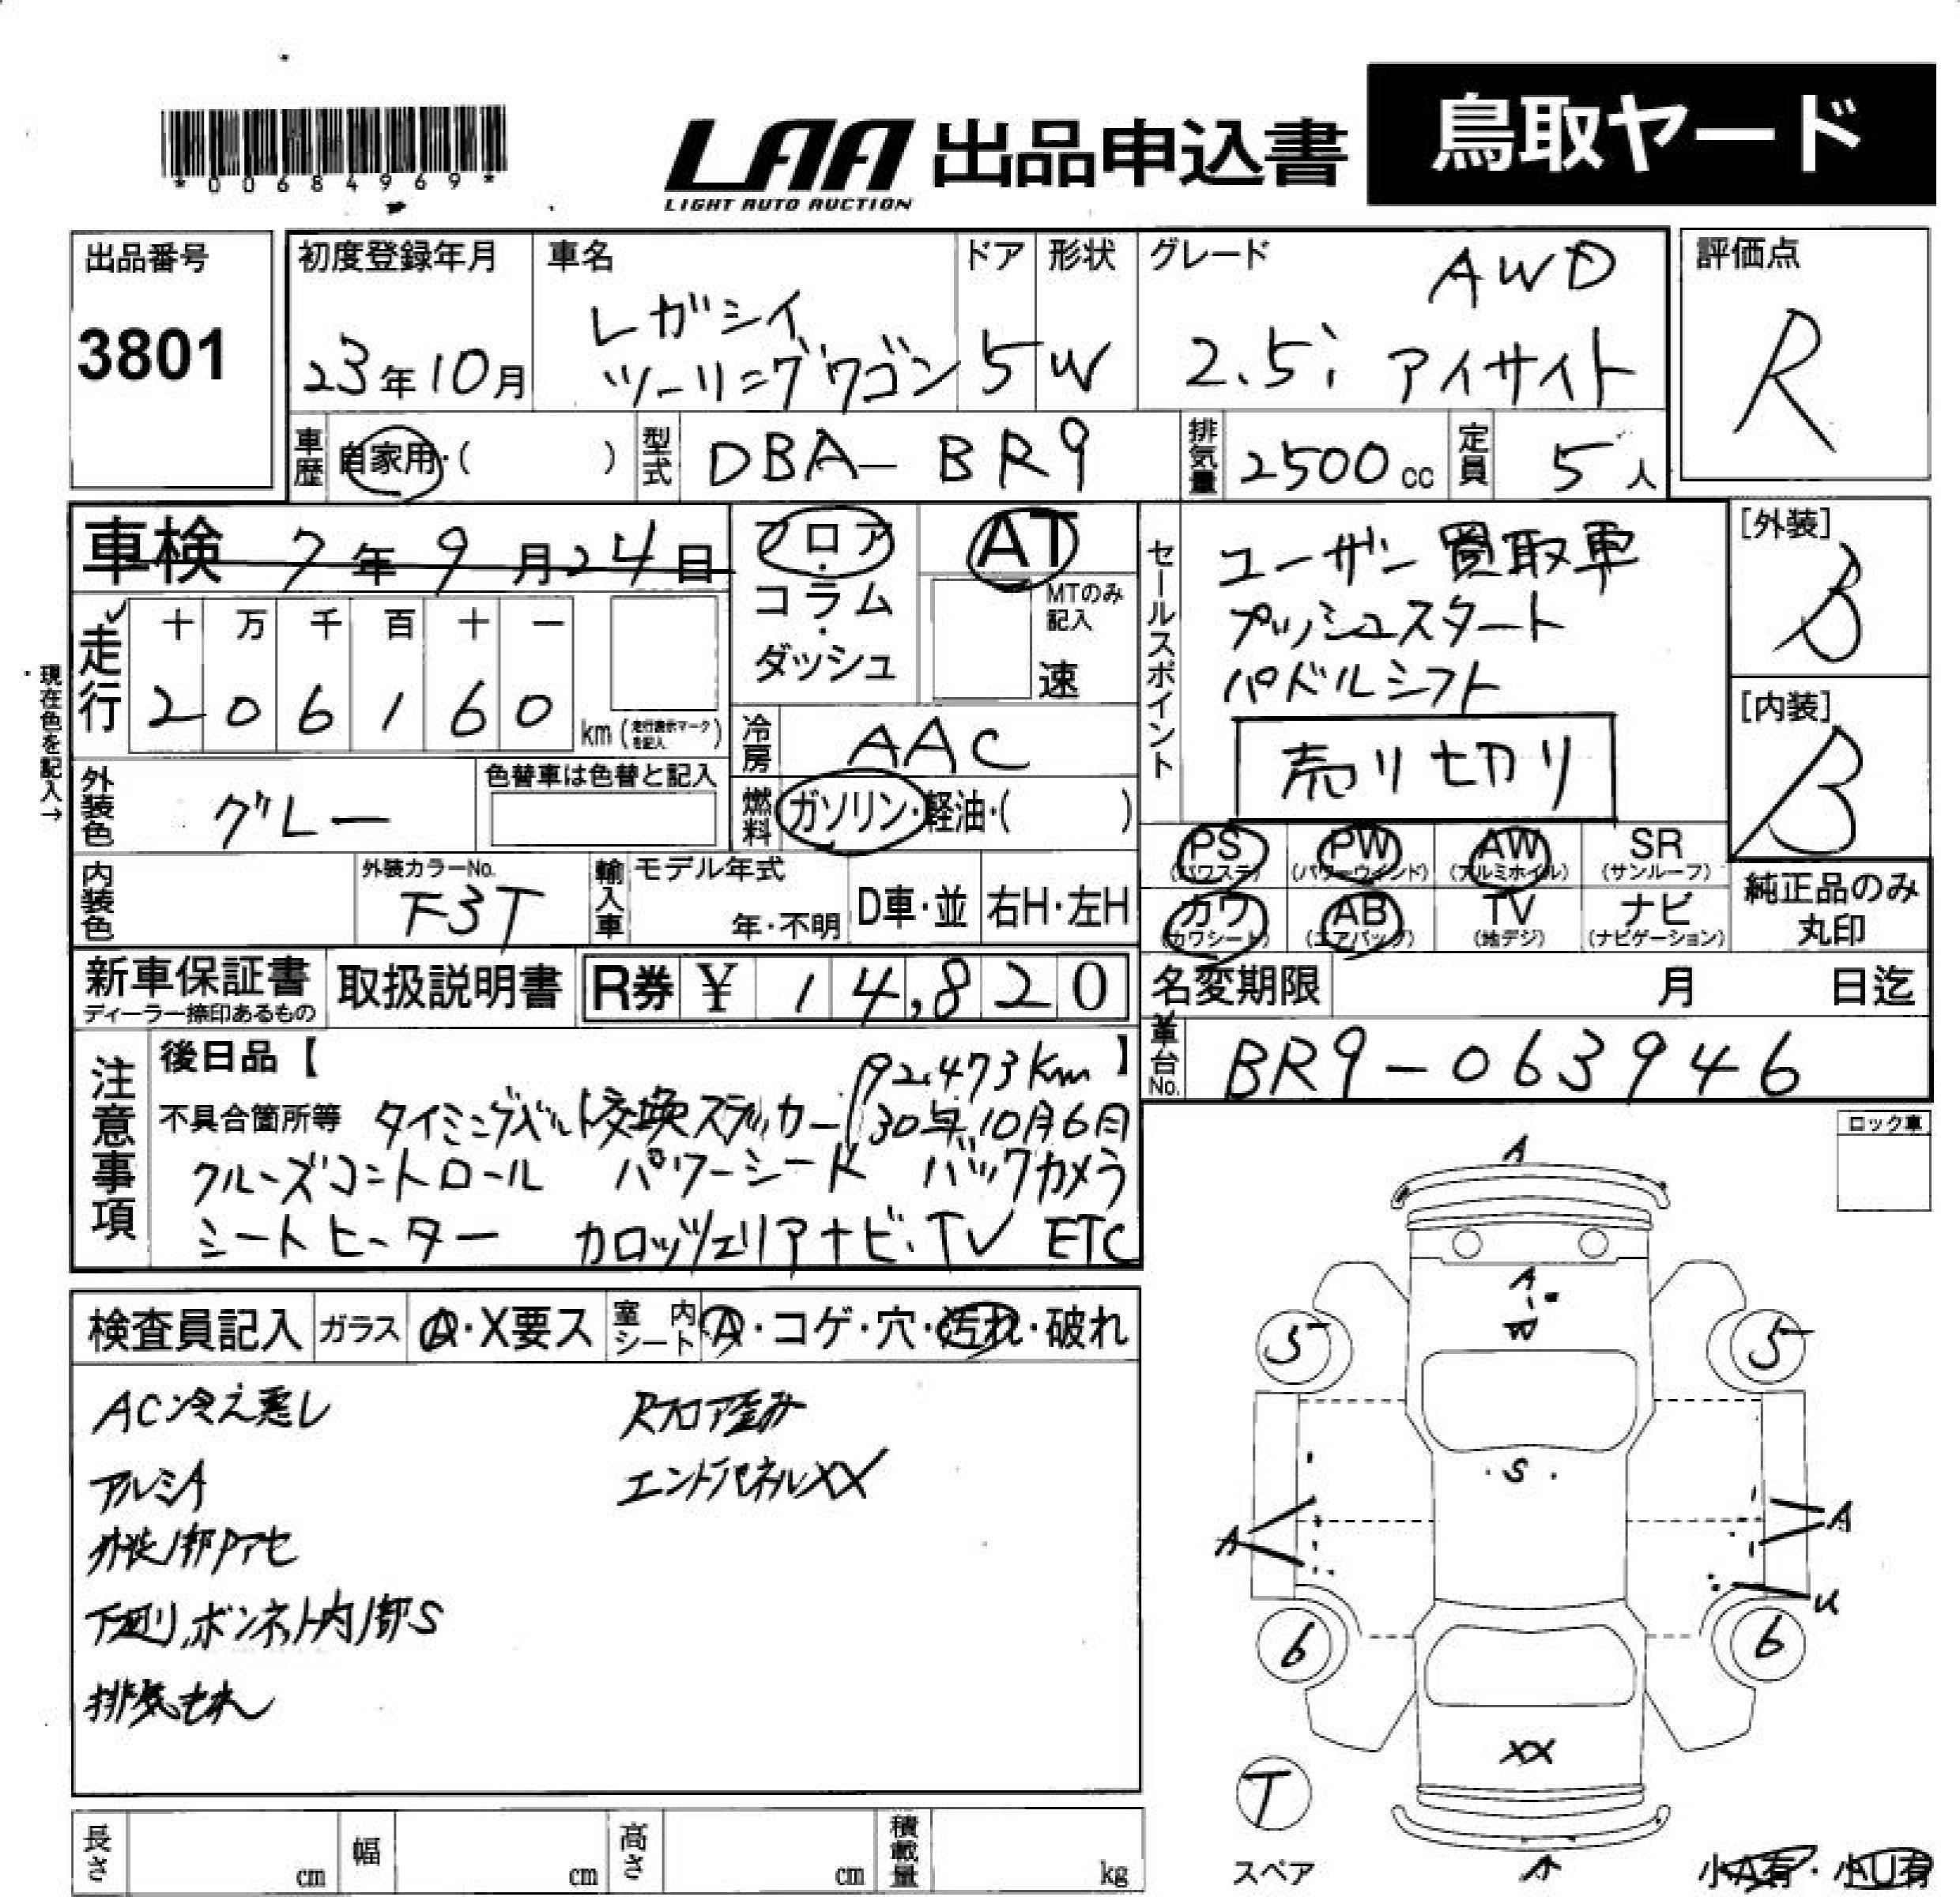 *00684969*
LAA 出品申込書 鳥取ヤード
LIGHT AUTO AUCTION
出品番号 3801
初度登録年月 23年10月
車名 レガシイ
ツーリングワゴン
ドア 5
形状 W
グレード AWD
2.5i アイサイト
評価点 R
車歴 自家用・( )
型式 DBA-BR9
排気量 2500cc
定員 5人
車検 7年9月24日
フロア・コラム・ダッシュ
AT
MTのみ記入
速
セールスポイント
ユーザー買取車
プッシュスタート
パドルシフト
売り切り
[外装] B
[内装] B
走行
十 万 千 百 十 一
2 0 6 1 6 0 km (走行表示マークを記入)
現在色を記入→
冷房 AAC
外装色 グレー
色替車は色替と記入
燃料 ガソリン・軽油・( )
内装色
外装カラーNo. F3T
輸入車 モデル年式 年・不明 D車・並 右H・左H
PS (パワステ) PW (パワーウインド) AW (アルミホイル) SR (サンルーフ)
カワ (カワシート) AB (エアバッグ) TV (地デジ) ナビ (ナビゲーション)
純正品のみ丸印
新車保証書
ディーラー捺印あるもの
取扱説明書
R券 ¥ 14,820
名変期限 月 日迄
車台No. BR9-063946
注意事項
後日品【 】
92,473Km
不具合箇所等 タイミングベルト交換ステッカー 30年10月6日
クルーズコントロール パワーシート バックカメラ
シートヒーター カロッツェリアナビ・TV ETC
ロック車
検査員記入 ガラス A・X要ス 室内シート A・コゲ・穴・汚れ・破れ
AC冷え悪し
アルミA
外装1部Pアセ
下廻り,ボンネット内1部S
排気もれ
Rフロア歪み
エンドパネルXX
A
A
W
5 5
S
A A
U
6 6
XX
T
スペア
A
小A有・小U有
長さ cm 幅 cm 高さ cm 積載量 kg